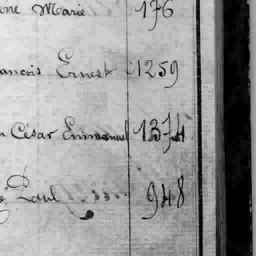 Marie 176
Ernest 1259
César Emmanuel 1374
Paul 948